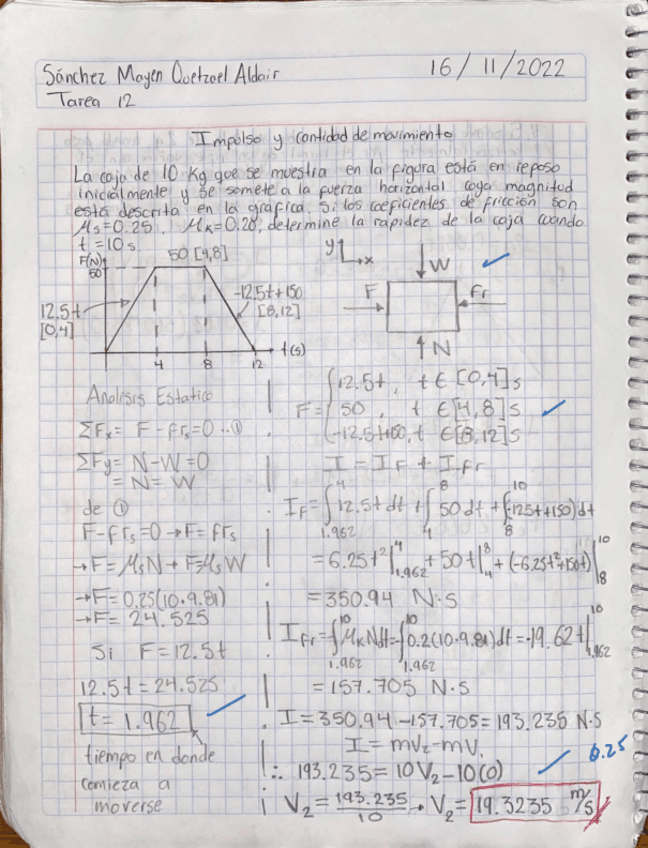 Sánchez Mayen Quetzael Aldair
16/11/2022
Tarea 12
Impulso y cantidad de movimiento
La caja de 10 Kg que se muestra en la figura está en reposo
inicialmente y se somete a la fuerza horizontal cuya magnitud
está descrita en la gráfica. Si los coeficientes de fricción son
μs=0.25, μk=0.20, determine la rapidez de la caja cuando
t=10s.
F(N)
50
50 [4,8]
12.5t
[0,4]
-12.5t+150
[8,12]
4 8 12 t(s)
y
x
W
F
Fr
N
Analisis Estatico
ΣFx = F - frs = 0 ..①
ΣFy = N-W = 0
= N = W
de ①
F-frs=0 → F=frs
→F=μsN → F=μsW
→F=0.25(10·9.81)
→F= 24.525
Si F=12.5t
12.5t=24.525
t=1.962
tiempo en donde
comieza a
moverse
F= { 12.5t, t ∈ [0,4]s
50, t ∈ [4,8]s
-12.5t+150, t ∈ [8,12]s
I = IF + Ifr
IF = ∫₁.₉₆₂⁴ 12.5t dt + ∫₄⁸ 50 dt + ∫₈¹⁰ (-12.5t+150) dt
= 6.25t²|₁.₉₆₂⁴ + 50t|₄⁸ + (-6.25t²+150t)|₈¹⁰
= 350.94 N·S
Ifr = ∫₁.₉₆₂¹⁰ μkNdt = ∫₁.₉₆₂¹⁰ 0.2(10·9.81)dt = -19.62t|₁.₉₆₂¹⁰
= 157.705 N·S
I = 350.94 - 157.705 = 193.235 N·S
I = mV₂-mV₁
∴ 193.235 = 10V₂-10(0)
0.25
V₂ = 193.235/10 → V₂ = 19.3235 m/s